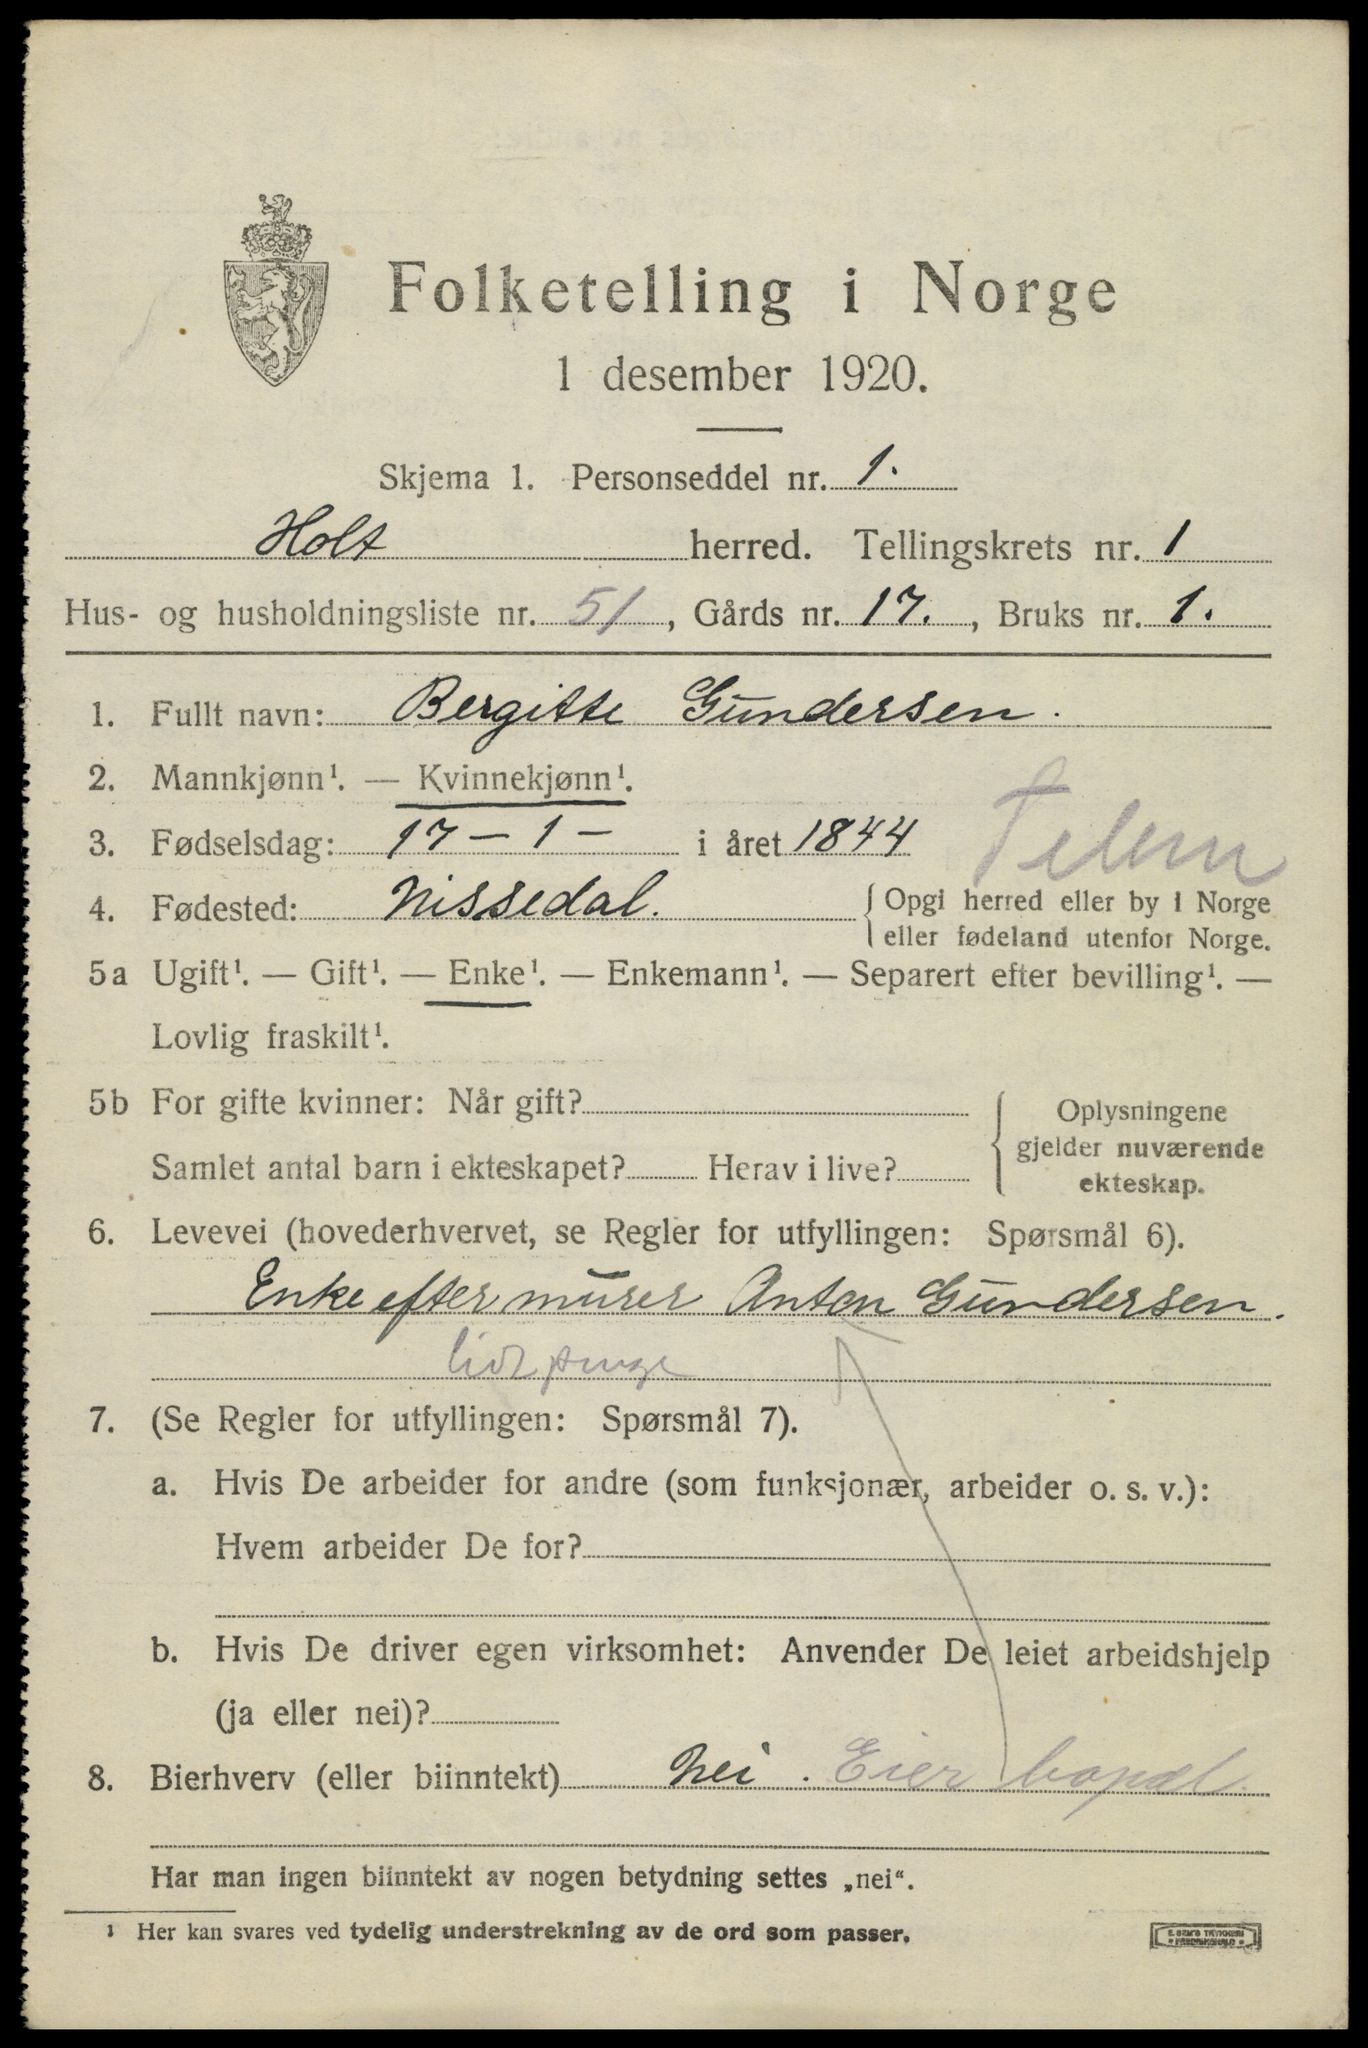 Folketelling i Norge
1 desember 1920.
Skjema 1. Personseddel nr. 1.
Holt herred. Tellingskrets nr. 1
Hus- og husholdningsliste nr. 51, Gårds nr. 17., Bruks nr. 1.
1. Fullt navn: Bergitte Gundersen.
2. Mannkjønn¹. — Kvinnekjønn¹.
3. Fødselsdag: 17 - 1 - i året 1844
Telem
4. Fødested: Nissedal. { Opgi herred eller by i Norge
eller fødeland utenfor Norge.
5a Ugift¹. — Gift¹. — Enke¹. — Enkemann¹. — Separert efter bevilling¹. —
Lovlig fraskilt¹.
5b For gifte kvinner: Når gift?
Samlet antal barn i ekteskapet? Herav i live?
{ Oplysningene
gjelder nuværende
ekteskap.
6. Levevei (hovederhvervet, se Regler for utfyllingen: Spørsmål 6).
Enke efter murer Anton Gundersen.
7. (Se Regler for utfyllingen: Spørsmål 7).
a. Hvis De arbeider for andre (som funksjonær, arbeider o. s. v.):
Hvem arbeider De for?
b. Hvis De driver egen virksomhet: Anvender De leiet arbeidshjelp
(ja eller nei)?
8. Bierhverv (eller biinntekt) Nei. Eier bopæl
Har man ingen biinntekt av nogen betydning settes „nei“.
¹ Her kan svares ved tydelig understrekning av de ord som passer.